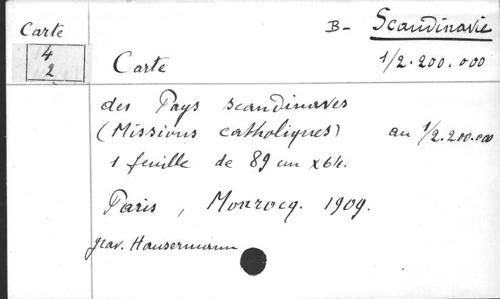 Carte
4
2
B- Scandinavie
Carte 1/2.200.000
des Pays scandinaves
(Missions catholiques) au 1/2.200.000
1 feuille de 89 cm x 64.
Paris, Monrocq. 1909.
grav. Hausermann